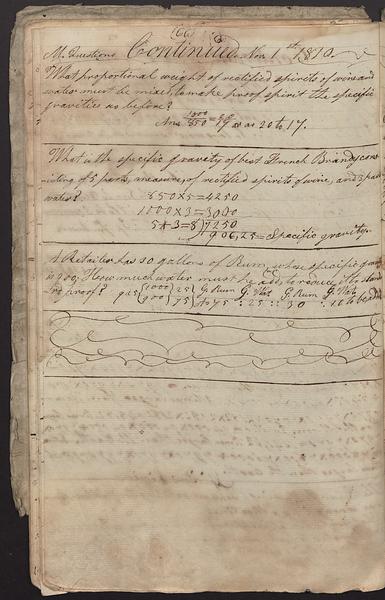 (66)
M. Questions Continued. Nov 1st 1810
What proportional weight of rectified spirits of wine and
water must be mixed, to make proof spirit the specific
gravities as before?
Ans 1000/850 = 20/17 or as 20 to 17.
What is the specific gravity of best French Brandy cons
isting of 5 parts, measure, of rectified spirits of wine, and 3 parts
water?
850 x 5 = 4250
1000 x 3 = 3000
5 + 3 = 8 ) 7250
906,25 = Specific gravity.
A Retailer has 30 gallons of Rum, whose specific gravity
is 900; How much water must be add, to reduce it to stand
'rd proof? 925 { 1000 } 25 G. Rum G. Wat G. Rum G. Wat.
{ 900 } 75 As 75 : 25 :: 30 : 10 to be add